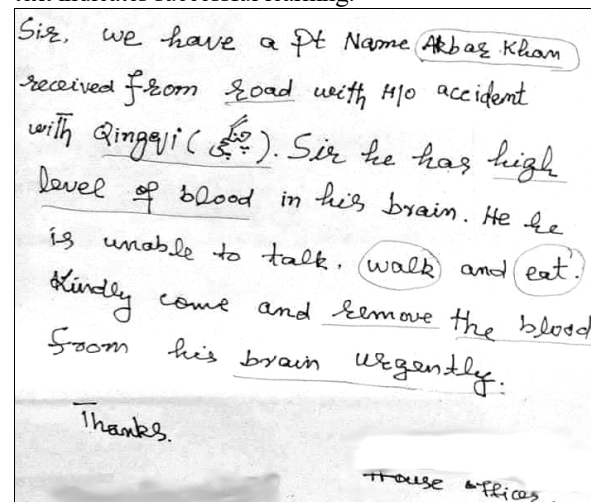 Sir, we have a pt Name Akbar Khan
received from road with H/o accident
with Qingqji (چنگچی). Sir he has high
level of blood in his brain. He he
is unable to talk, walk and eat.
Kindly come and remove the blood
from his brain urgently.
Thanks.
House officer